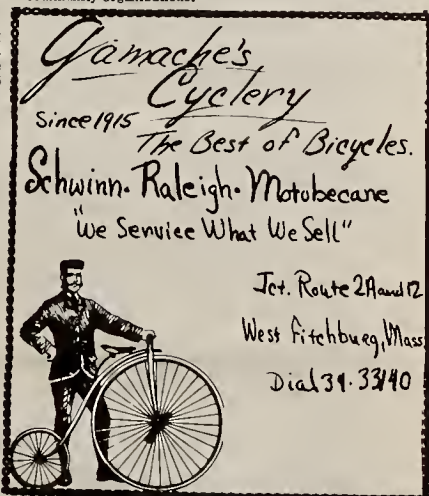 Gamache's
Cyclery
Since 1915
The Best of Bicycles.
Schwinn. Raleigh. Motobecane
"We Service What We Sell"
Jct. Route 2A and 12
West Fitchburg, Mass
Dial 34.33140